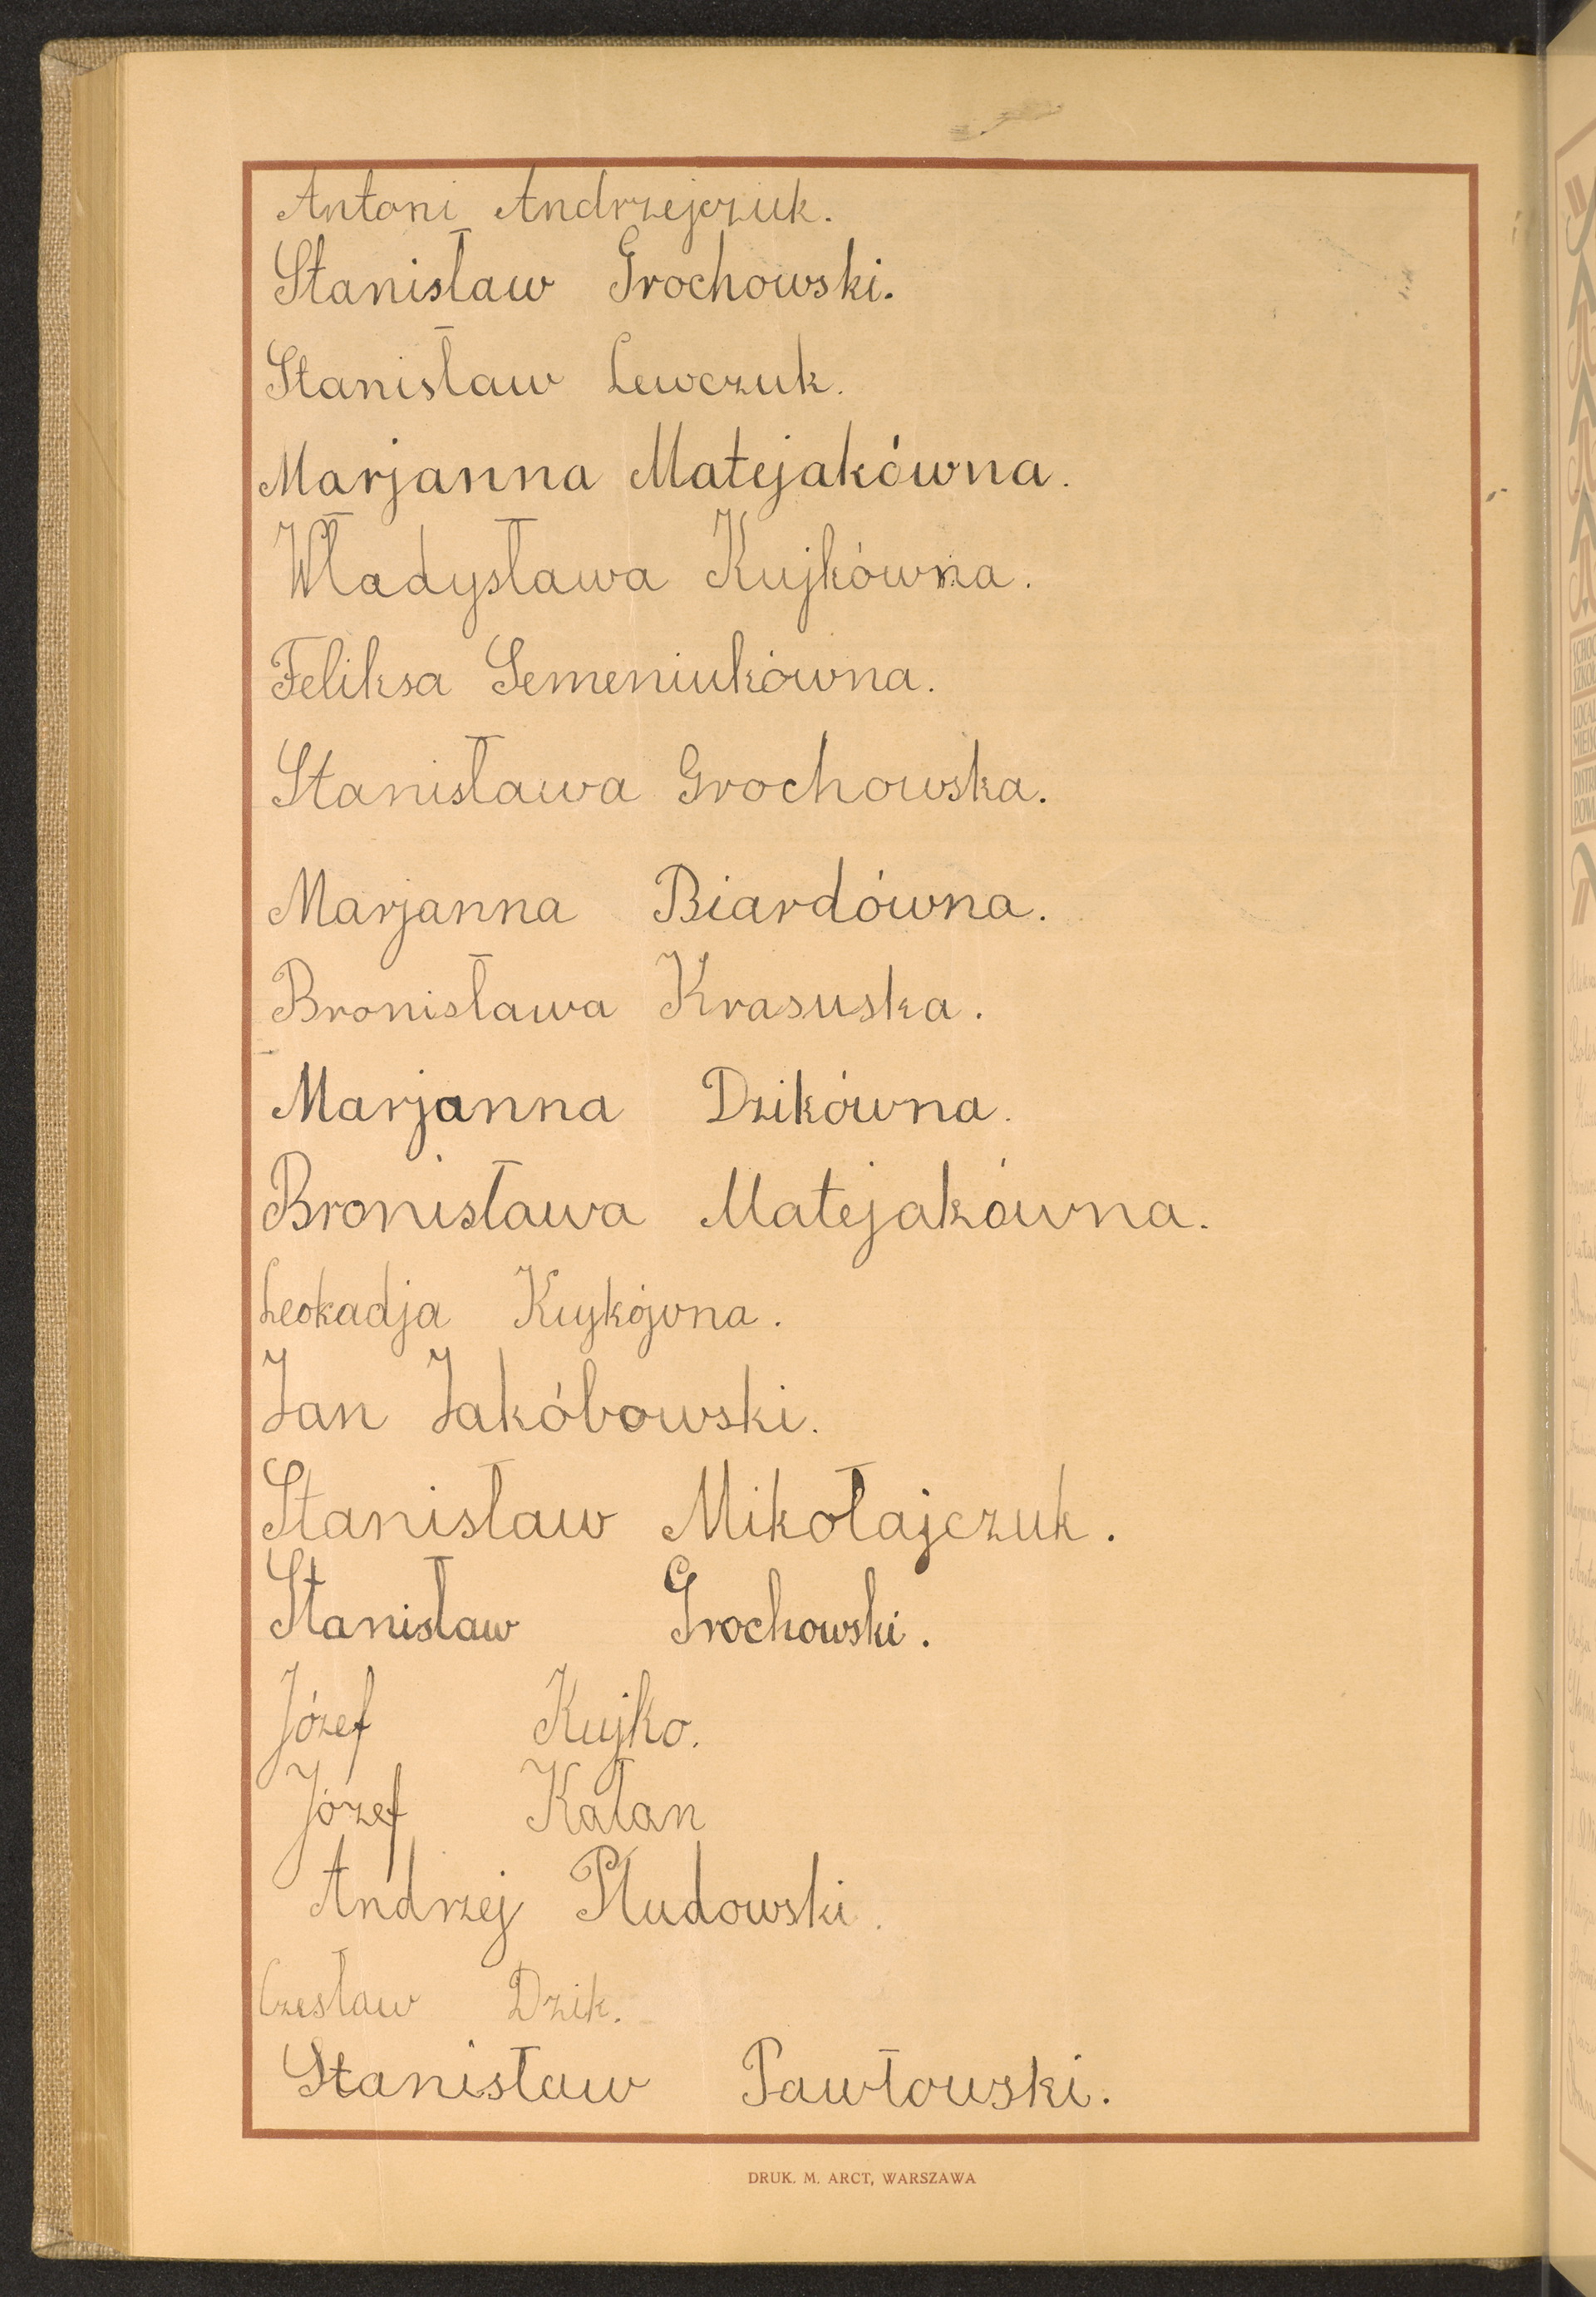 Antoni Andrzejczuk.
Stanisław Grochowski.
Stanisław Lewczuk.
Marjanna Matejakówna.
Władysława Kujkówna.
Feliksa Semeniukówna.
Stanisława Grochowska.
Marjanna Biardówna.
Bronisława Krasuska.
Marjanna Dzikówna.
Bronisława Matejakówna.
Leokadja
Jan Jakóbowski.
Stanisław Mikołajczuk.
Stanisław Grochowski.
Józef Kujko.
Józef Kałan
Andrzej Płudowski.
Czesław Dzik.
Stanisław Pawłowski.
DRUK. M. ARCT, WARSZAWA